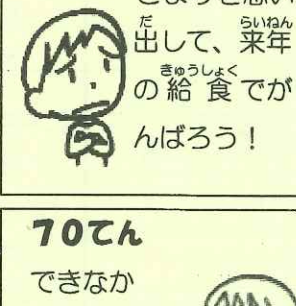 出して、来年
の給食でが
んばろう！
70てん
できなか